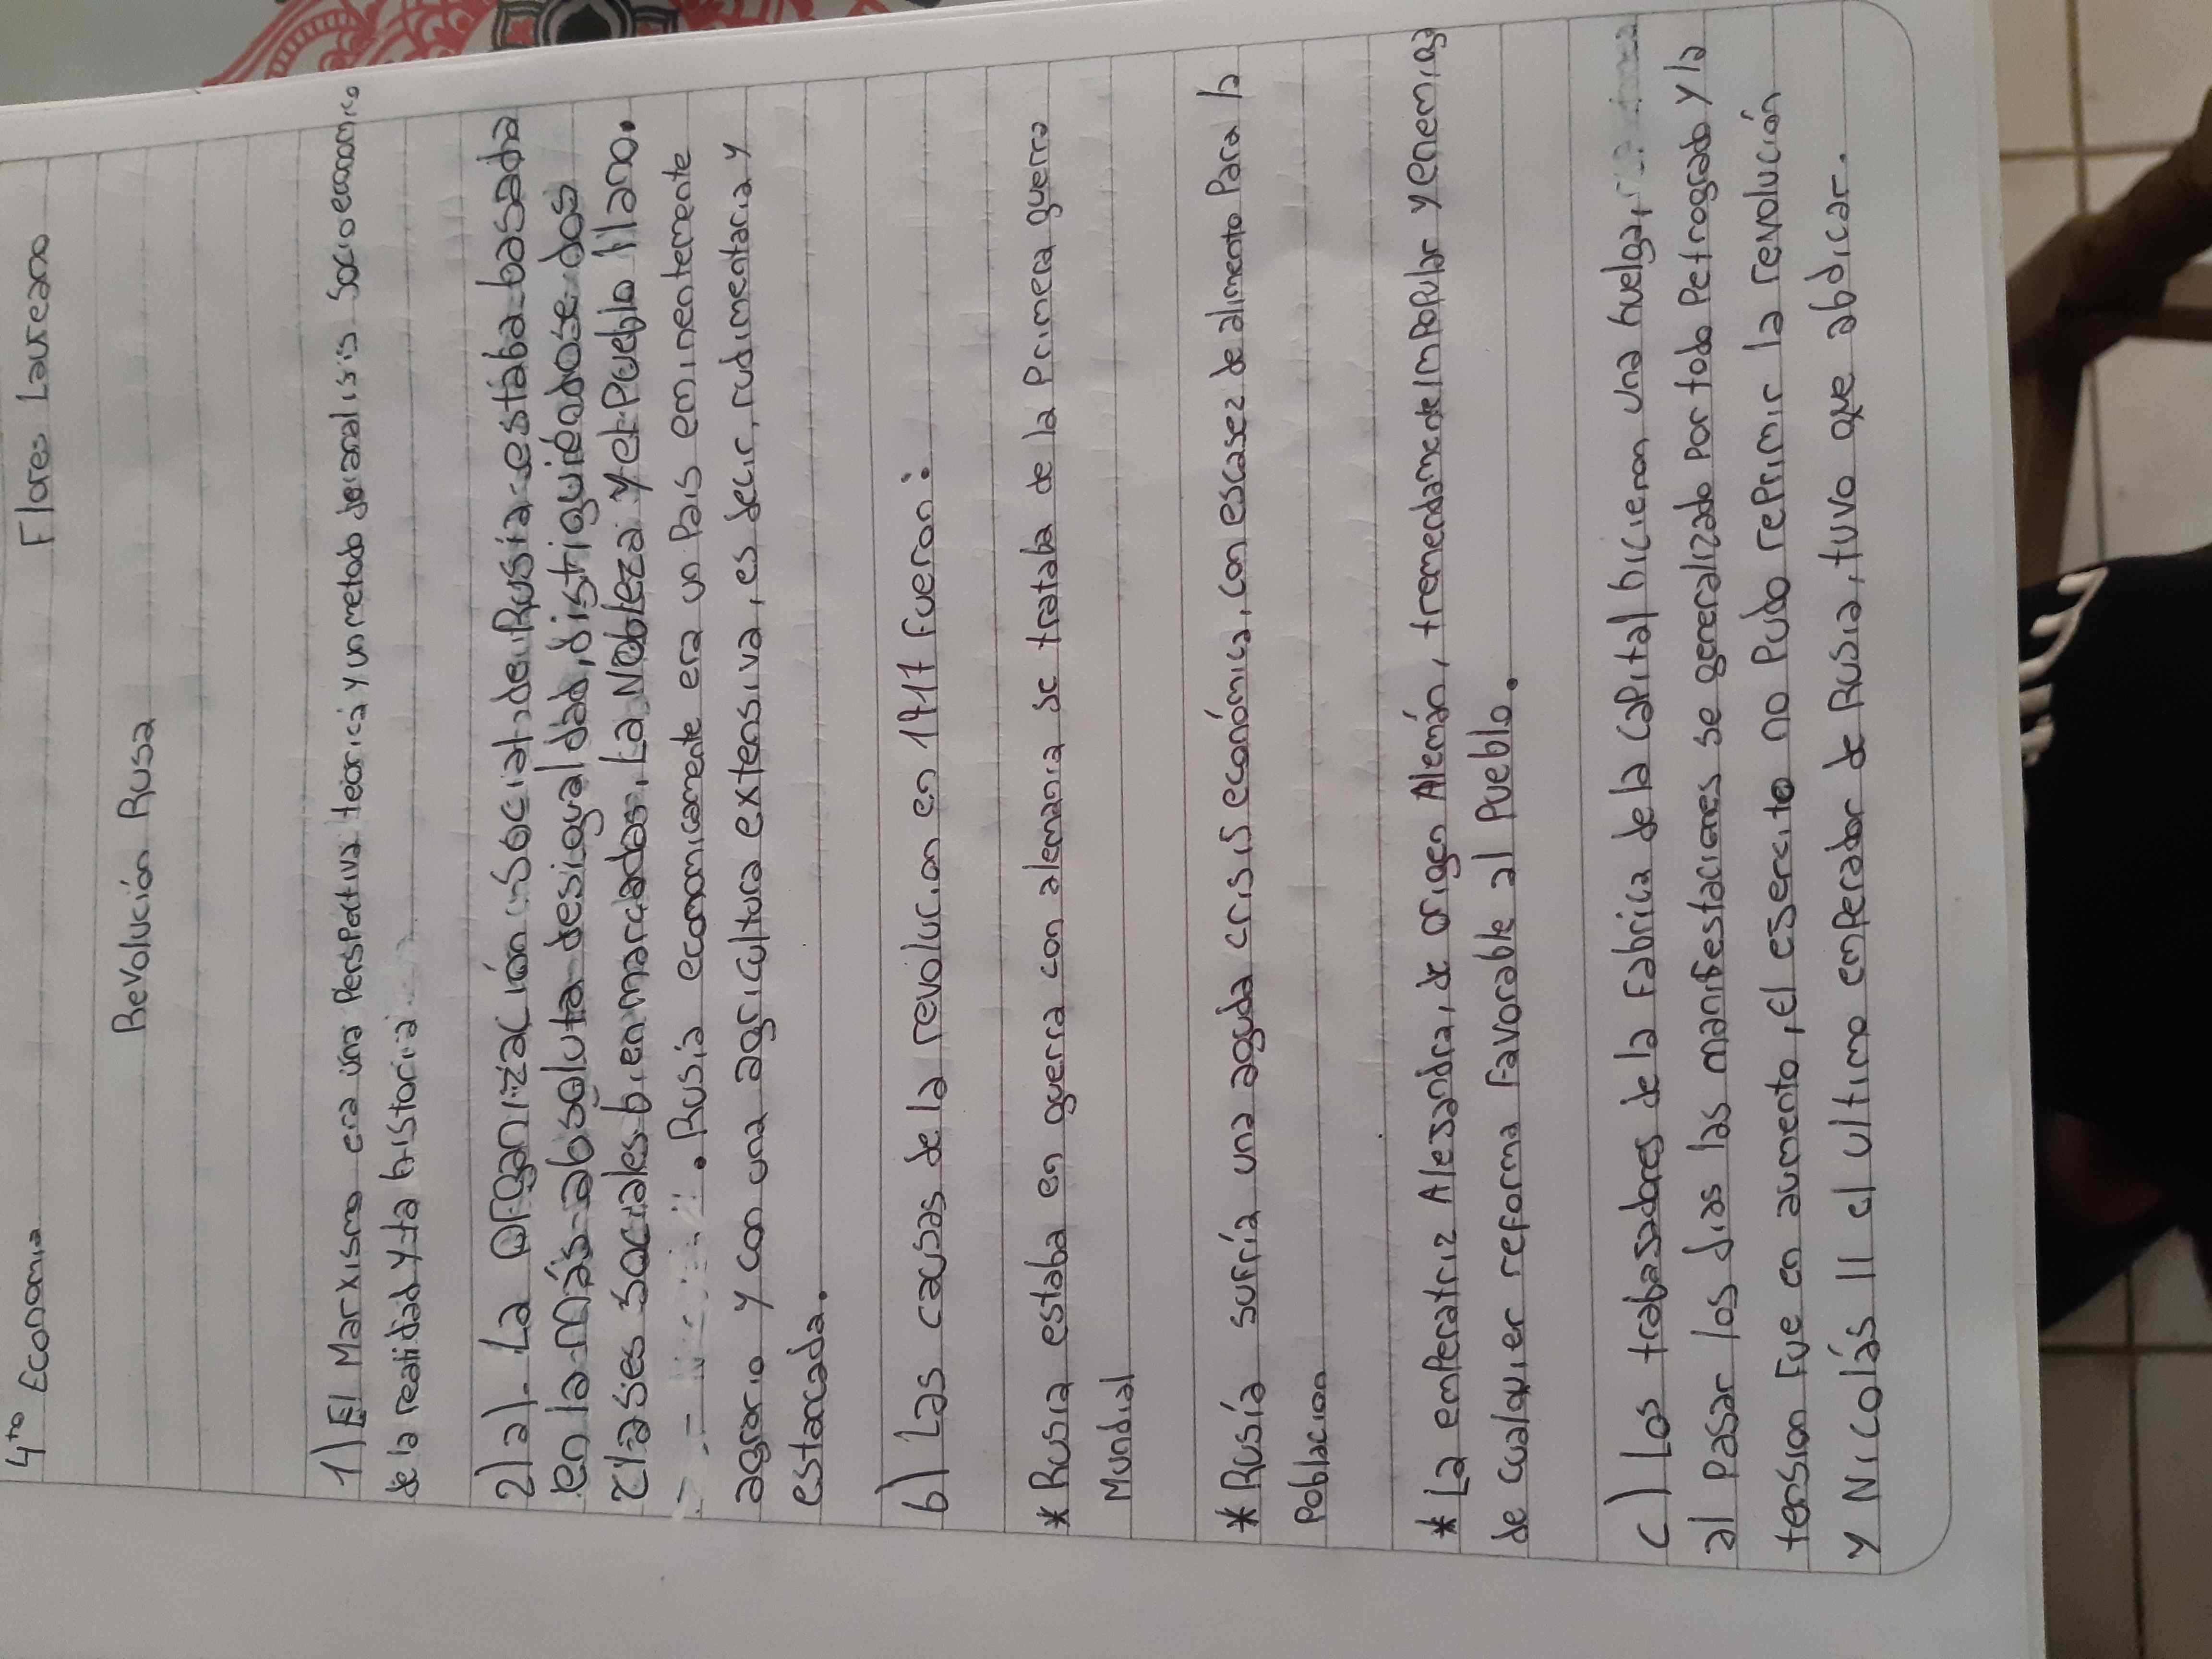 4to Economia Flores Laureano
Revolución Rusa
1) El Marxismo era una Perspectiva teorica y un metodo de analisis Socio economico
de la realidad y la historia
2) a). La Organización Social de Rusia estaba basada
en la más absoluta desigualdad, distiguiéndose dos
clases sociales bien marcadas, La Nobleza y el Pueblo llano.
. Rusia economicamente era un Pais eminentemente
agrario y con una agricultura extensiva, es decir, rudimentaria y
estancada.
b) Las causas de la revolucion en 1917 Fueron:
* Rusia estaba en guerra con alemania se trataba de la Primera guerra
Mundial
* Rusía sufría una aguda crisis económica, con escasez de alimento Para la
Poblacion
* La emperatriz Alessandra, de origen Alemán, tremendamente impopular y enemiga
de cualquier reforma Favorable al Pueblo.
c) Los trabasadores de la Fabrica de la capital hicieron una huelga,
al Pasar los dias las manifestaciones se generalizado Por todo Petrogrado y la
tension Fue en aumento, El esercito no Pudo reprimir la revolución
y Nicolás II el ultimo emperador de Rusia, tuvo que abdicar.